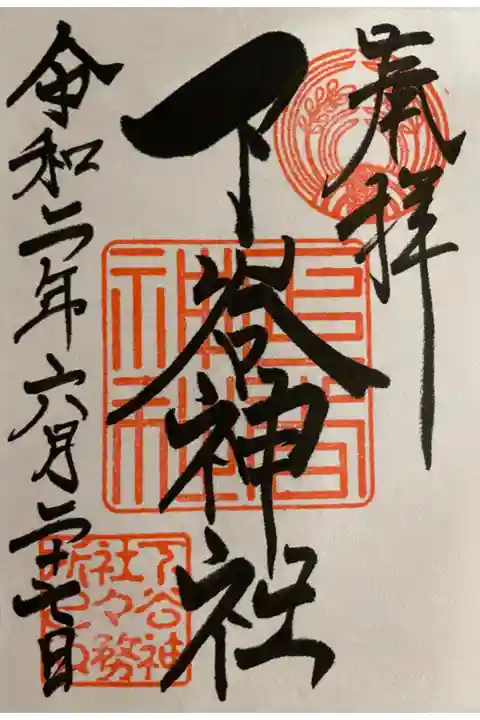 奉拝
下谷神社
令和二年六月二十七日
下谷神
社々務
所之印